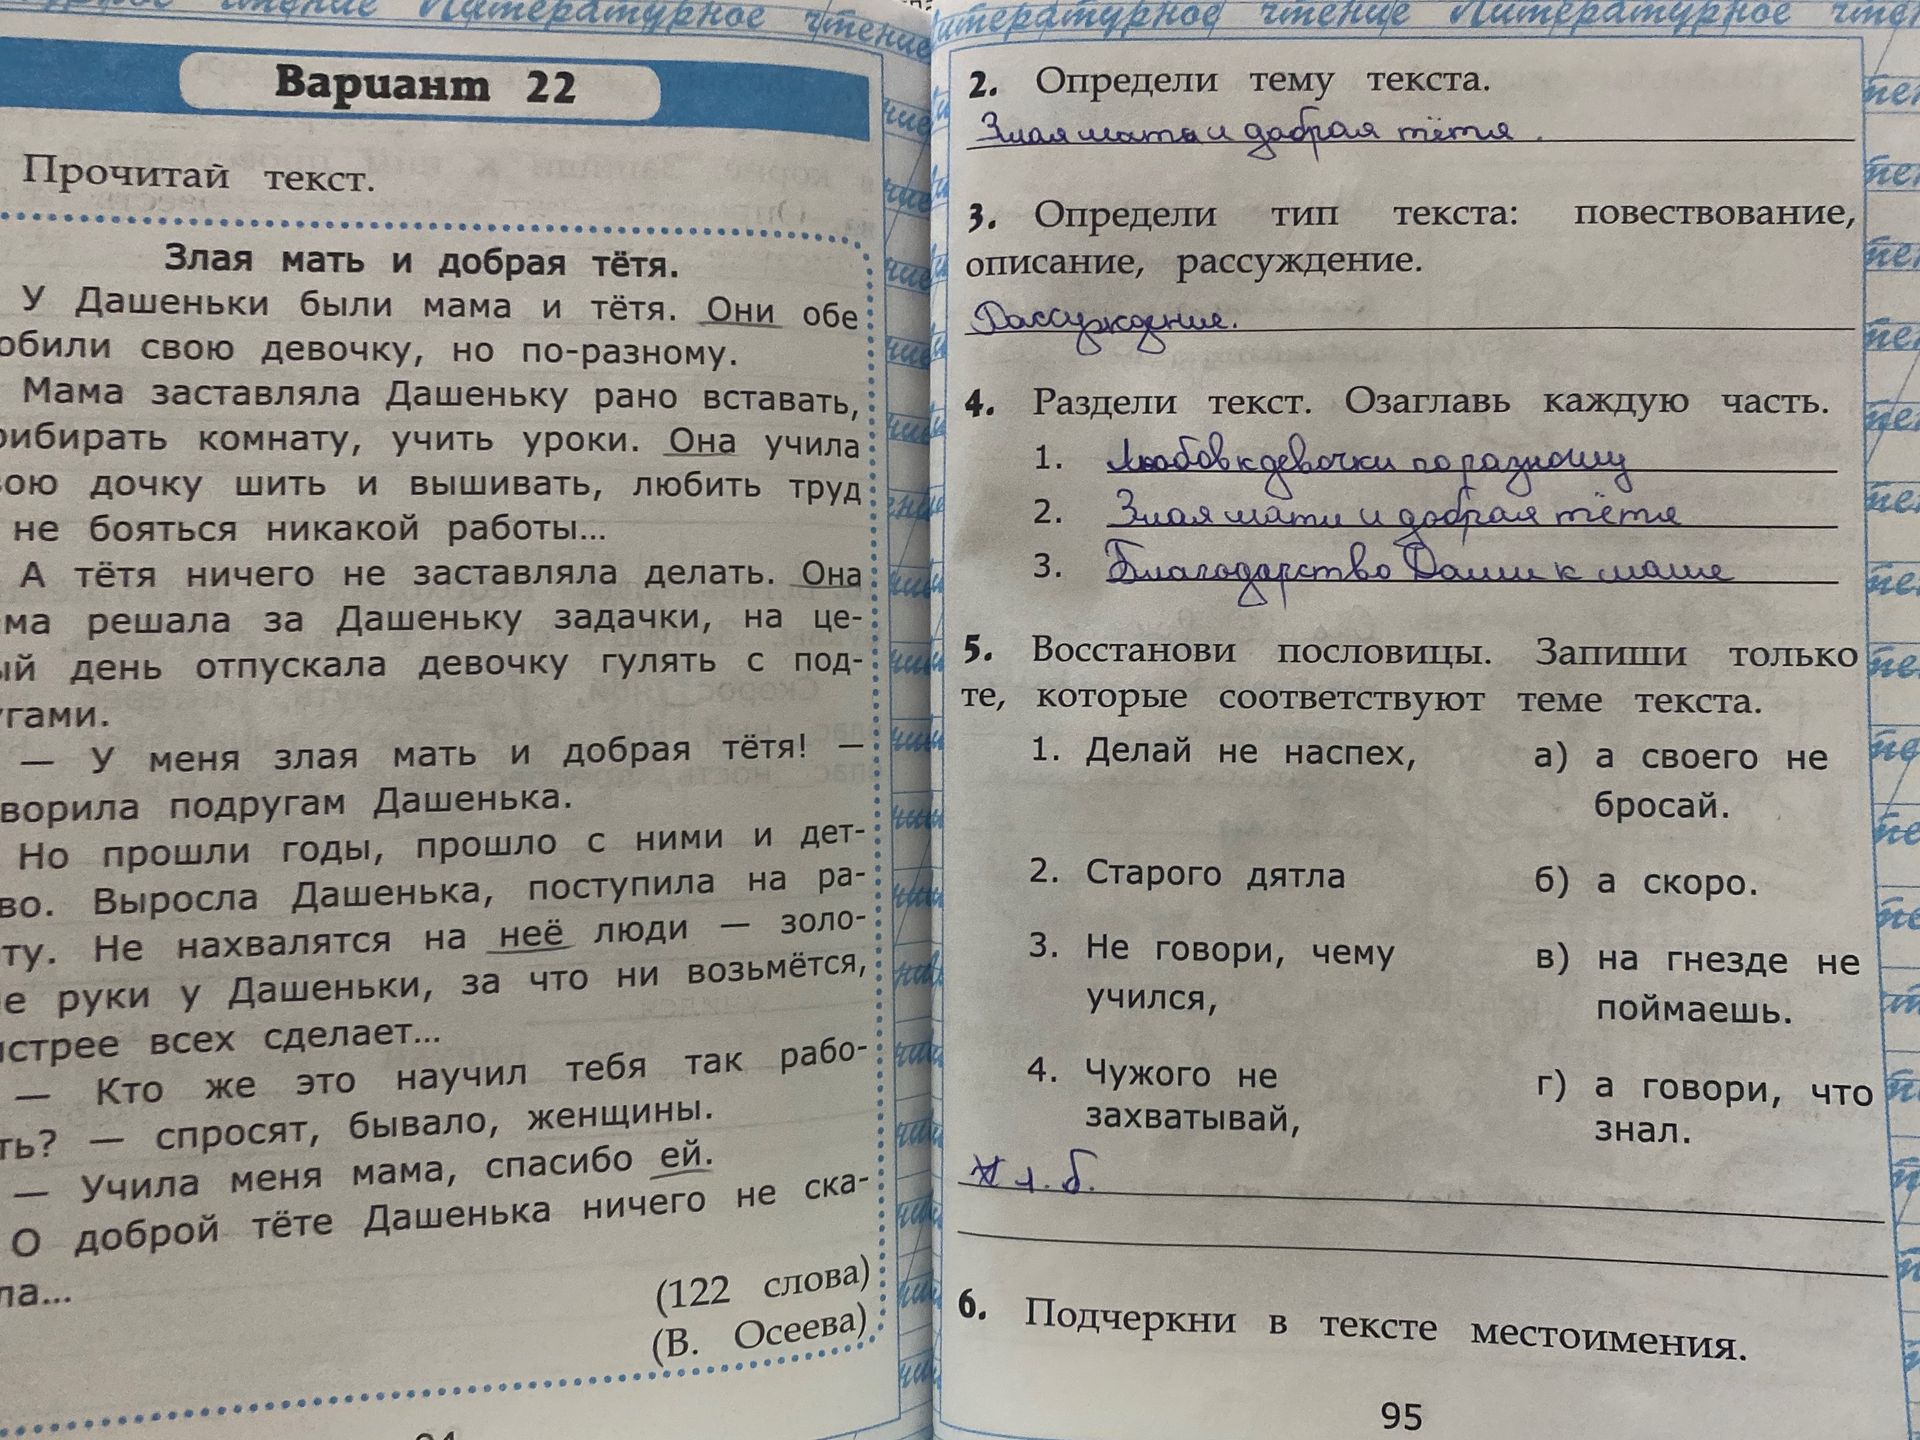 чтение Литературное чтение
Вариант 22
Прочитай текст.
Злая мать и добрая тётя.
У Дашеньки были мама и тётя. Они обе
обили свою девочку, но по-разному.
Мама заставляла Дашеньку рано вставать,
рибирать комнату, учить уроки. Она учила
вою дочку шить и вышивать, любить труд
не бояться никакой работы...
А тётя ничего не заставляла делать. Она
ма решала за Дашеньку задачки, на це-
ый день отпускала девочку гулять с под-
угами.
— У меня злая мать и добрая тётя! —
ворила подругам Дашенька.
Но прошли годы, прошло с ними и дет-
во. Выросла Дашенька, поступила на ра-
ту. Не нахвалятся на неё люди — золо-
е руки у Дашеньки, за что ни возьмётся,
стрее всех сделает...
— Кто же это научил тебя так рабо-
ть? — спросят, бывало, женщины.
— Учила меня мама, спасибо ей.
О доброй тёте Дашенька ничего не ска-
ла...
(122 слова)
(В. Осеева)
Литературное чтение Литературное
2. Определи тему текста.
Злая мать и добрая тётя.
3. Определи тип текста: повествование,
описание, рассуждение.
Рассуждение.
4. Раздели текст. Озаглавь каждую часть.
1. Любовь к девочки по разному
2. Злая мать и добрая тётя
3. Благодарство Даши к маме
5. Восстанови пословицы. Запиши только
те, которые соответствуют теме текста.
1. Делай не наспех, а) а своего не
бросай.
2. Старого дятла б) а скоро.
3. Не говори, чему в) на гнезде не
учился, поймаешь.
4. Чужого не г) а говори, что
захватывай, знал.
1. б.
6. Подчеркни в тексте местоимения.
95